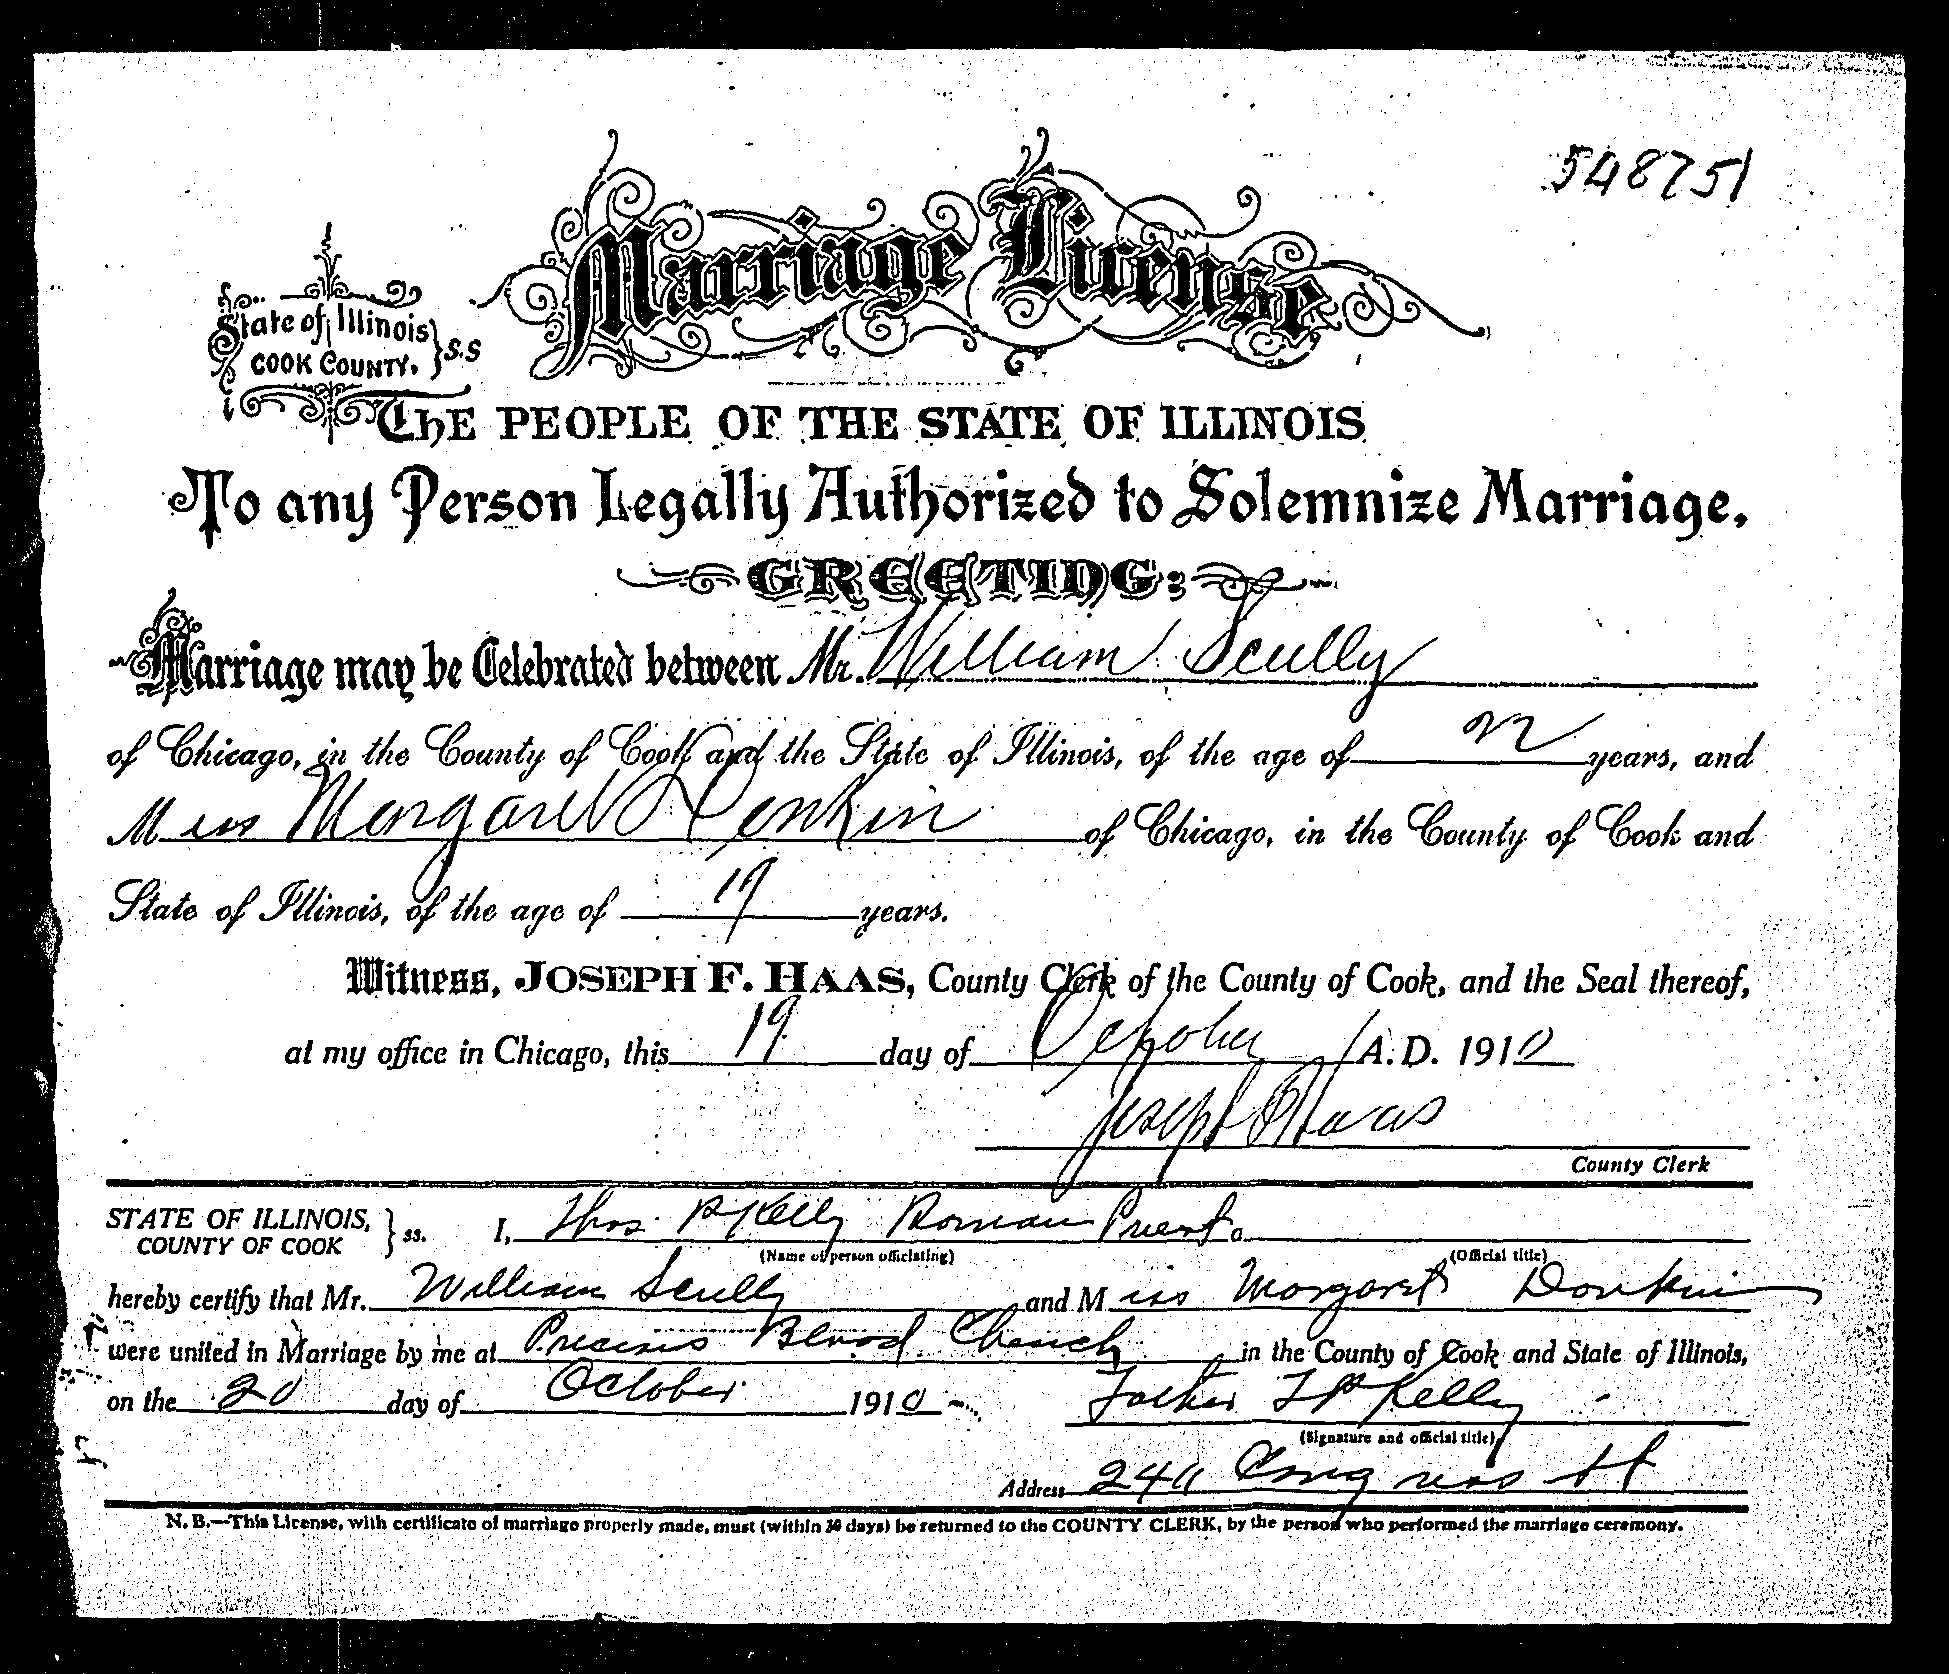 548751
Marriage License
State of Illinois
COOK COUNTY. } S.S
THE PEOPLE OF THE STATE OF ILLINOIS
To any Person Legally Authorized to Solemnize Marriage.
GREETING:
Marriage may be Celebrated between Mr. William Scully
of Chicago, in the County of Cook and the State of Illinois, of the age of 22 years, and
Miss Margaret Donkin of Chicago, in the County of Cook and
State of Illinois, of the age of 19 years.
Witness, JOSEPH F. HAAS, County Clerk of the County of Cook, and the Seal thereof,
at my office in Chicago, this 19 day of October A. D. 1910
Joseph F Haas
County Clerk
STATE OF ILLINOIS,
COUNTY OF COOK } ss. I, Thos. P Kelly Roman Priest
(Name of person officiating) (Official title)
hereby certify that Mr. William Scully and Miss Margaret Donkin
were united in Marriage by me at Precious Blood Church in the County of Cook and State of Illinois,
on the 20 day of October 1910 Father T P Kelly
(Signature and official title)
Address Congress st
N. B.—This License, with certificate of marriage properly made, must (within 30 days) be returned to the COUNTY CLERK, by the person who performed the marriage ceremony.